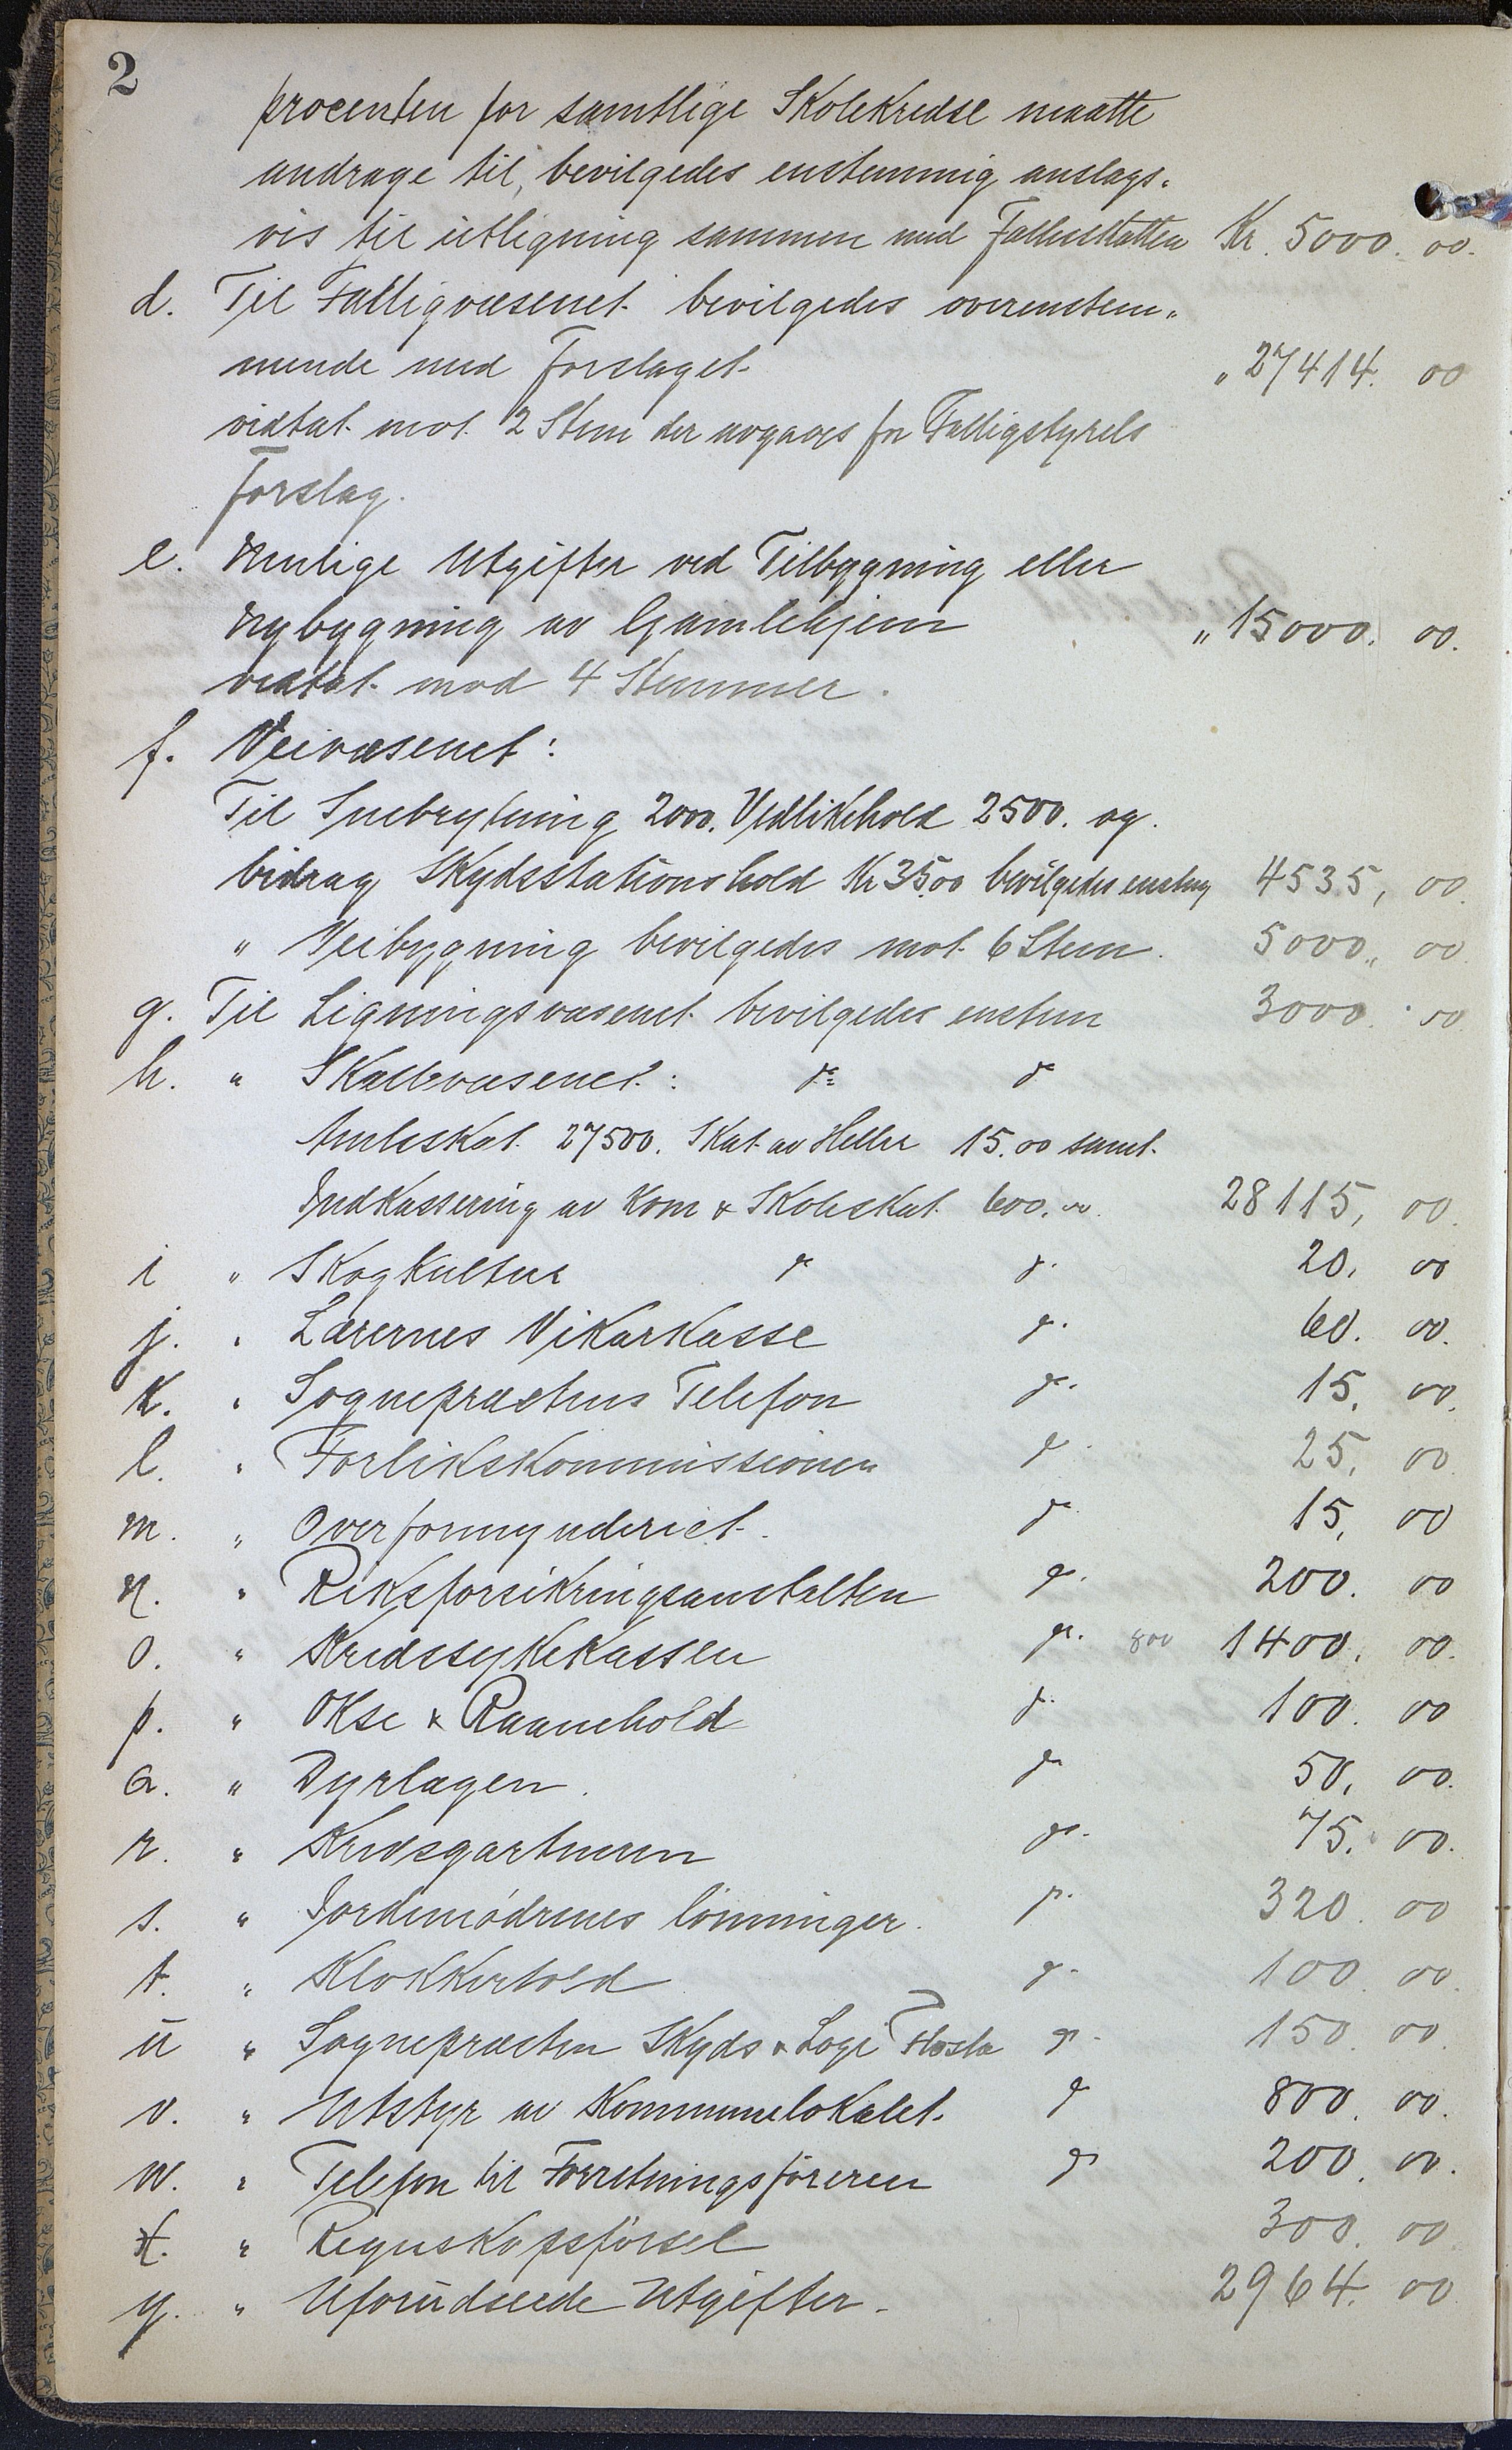 2
procenten for samtlige Skolekredse maatte
andrage til, bevilgedes enstemmig anslags-
vis til utligning sammen med Fællesskatten Kr. 5000. 00.
d. Til Fattigvæsenet bevilgedes overenstem-
mende med Forslaget. " 27414. 00
vidtat mot 2 Stem der avgaves for Fattigstyrets
Forslag.
e. Mulige Utgifter ved Tilbygning eller
Nybygning av Gamlehjem " 15000. 00.
vedtat mod 4 Stemmer.
f. Veivæsenet:
Til Snebrytning 2000. Vedlikehold 2500. og
bidrag Skydsstationshold Kr 35.00 bevilgedes enstem 4535, 00.
" Veibygning bevilgedes mot 6 Stem. 5000,, 00.
g. Til Ligningsvæsenet bevilgedes enstem 3000. 00
h. " Skattevæsenet: do do
Amtsskat 27500. Skat av Heller 15.00 samt
Indkassering av Kom & Skoleskat 600.00. 28115, 00.
i " Skogkultur do do 20, 00
j. " Lærernes Vikarkasse do 60. 00.
k. " Sogneprestens Telefon do 15, 00.
l. " Forlikskommissionen do 25, 00
m. " Overformynderiet. do 15, 00
n. " Riksforsikringsanstalten do 200. 00
o. " Kredssykekassen do 800 1400. 00.
p. " Okse & Raanehold do 100. 00
q. " Dyrlægen. do 50, 00.
r. " Kredsgartneren do 75. 00.
s. " Jordemødrenes lønninger. do 320. 00
t. " Klokkertold do 100. 00.
u " Sognepresten Skyds & Logi Flosta do 150. 00.
v. " Utstyr av Kommunelokalet. do 800. 00.
w. " Telefon til Forretningsføreren do 200. 00.
x. " Regnskapsførsel 300. 00
y. " Uforudseede Utgifter. 2964. 00